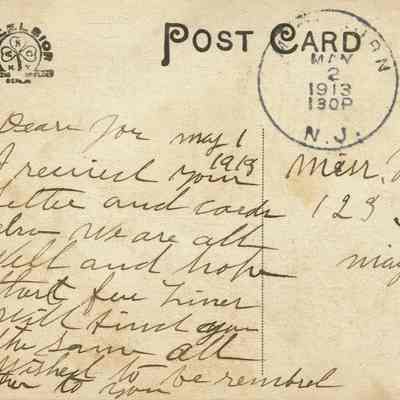 EXCELSIOR
BERLIN
POST CARD
MAY
2
1913
130P
N.J.
Dear Joe may 1
1913
I recived your
letter and cards
also we are all
well and hope
that few liner
will find you
the same all
wished to be rembrel
to you
123